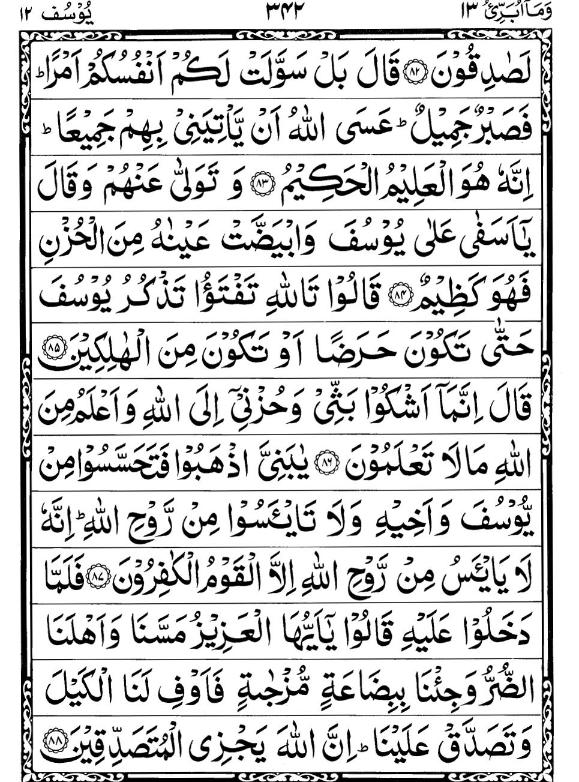 وَمَآ اُبَرِّئُ ١٣ ٣٤٢ يُوْسُف ١٢
لَصٰدِقُوْنَ ۝٨٢ قَالَ بَلْ سَوَّلَتْ لَكُمْ اَنْفُسُكُمْ اَمْرًا ؕ
فَصَبْرٌ جَمِيْلٌ ؕ عَسَى اللّٰهُ اَنْ يَّاْتِيَنِيْ بِهِمْ جَمِيْعًا ؕ
اِنَّهٗ هُوَ الْعَلِيْمُ الْحَكِيْمُ ۝٨٣ وَ تَوَلّٰى عَنْهُمْ وَقَالَ
يٰۤاَسَفٰى عَلٰى يُوْسُفَ وَابْيَضَّتْ عَيْنٰهُ مِنَ الْحُزْنِ
فَهُوَ كَظِيْمٌ ۝٨٤ قَالُوْا تَاللّٰهِ تَفْتَؤُا تَذْكُرُ يُوْسُفَ
حَتّٰى تَكُوْنَ حَرَضًا اَوْ تَكُوْنَ مِنَ الْهٰلِكِيْنَ ۝٨٥
قَالَ اِنَّمَاۤ اَشْكُوْا بَثِّيْ وَحُزْنِيْۤ اِلَى اللّٰهِ وَاَعْلَمُ مِنَ
اللّٰهِ مَا لَا تَعْلَمُوْنَ ۝٨٦ يٰبَنِيَّ اذْهَبُوْا فَتَحَسَّسُوْا مِنْ
يُّوْسُفَ وَاَخِيْهِ وَلَا تَايْـَٔسُوْا مِنْ رَّوْحِ اللّٰهِ ؕ اِنَّهٗ
لَا يَايْـَٔسُ مِنْ رَّوْحِ اللّٰهِ اِلَّا الْقَوْمُ الْكٰفِرُوْنَ ۝٨٧ فَلَمَّا
دَخَلُوْا عَلَيْهِ قَالُوْا يٰۤاَيُّهَا الْعَزِيْزُ مَسَّنَا وَاَهْلَنَا
الضُّرُّ وَجِئْنَا بِبِضَاعَةٍ مُّزْجٰىةٍ فَاَوْفِ لَنَا الْكَيْلَ
وَتَصَدَّقْ عَلَيْنَا ؕ اِنَّ اللّٰهَ يَجْزِى الْمُتَصَدِّقِيْنَ ۝٨٨